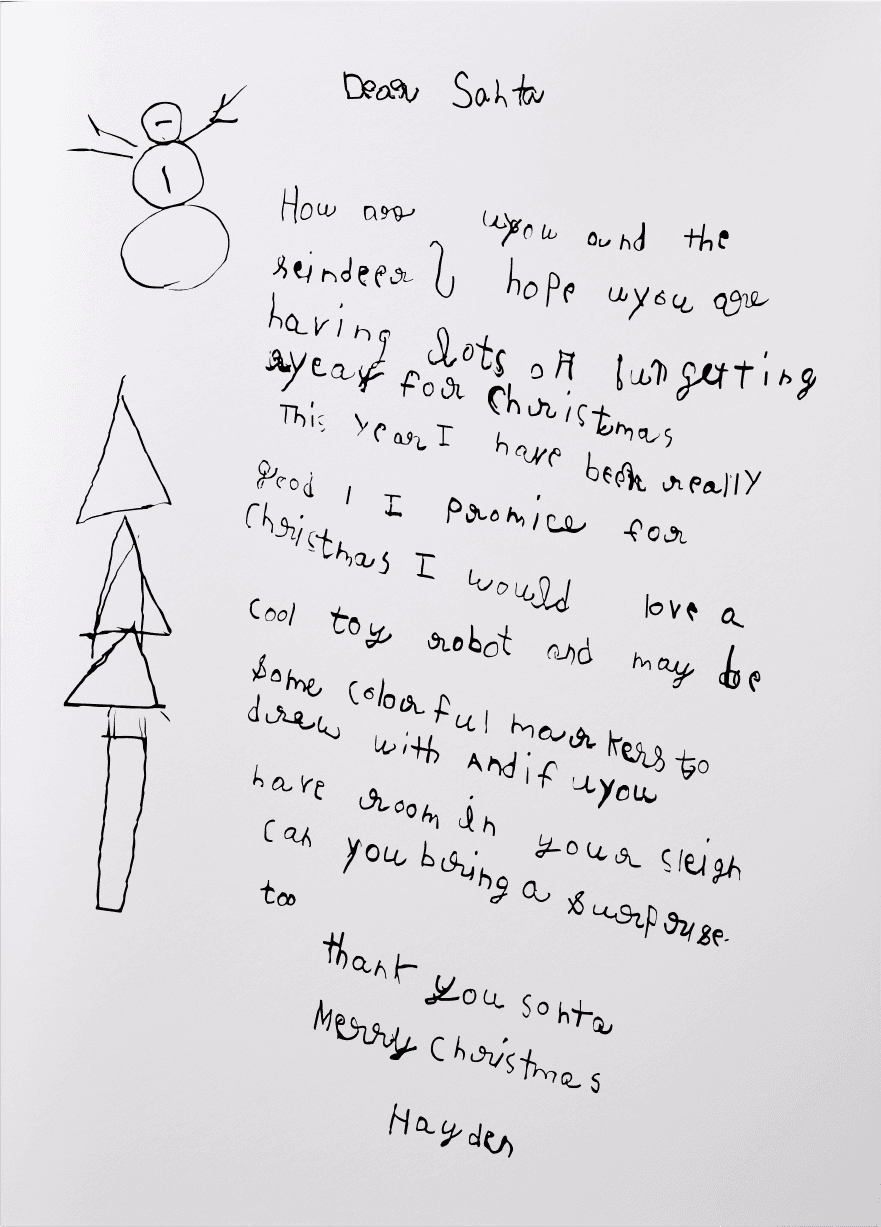 Dear Santa
How are you and the
reindeer I hope you are
having lots of fun getting
ryeay for Christmas
This year I have been really
good I I promice for
Christmas I would love a
cool toy robot and may be
some colourful markers to
draw with And if you
have room in your sleigh
can you bring a surpruse.
too
thank you Santa
Merry Christmas
Hayden